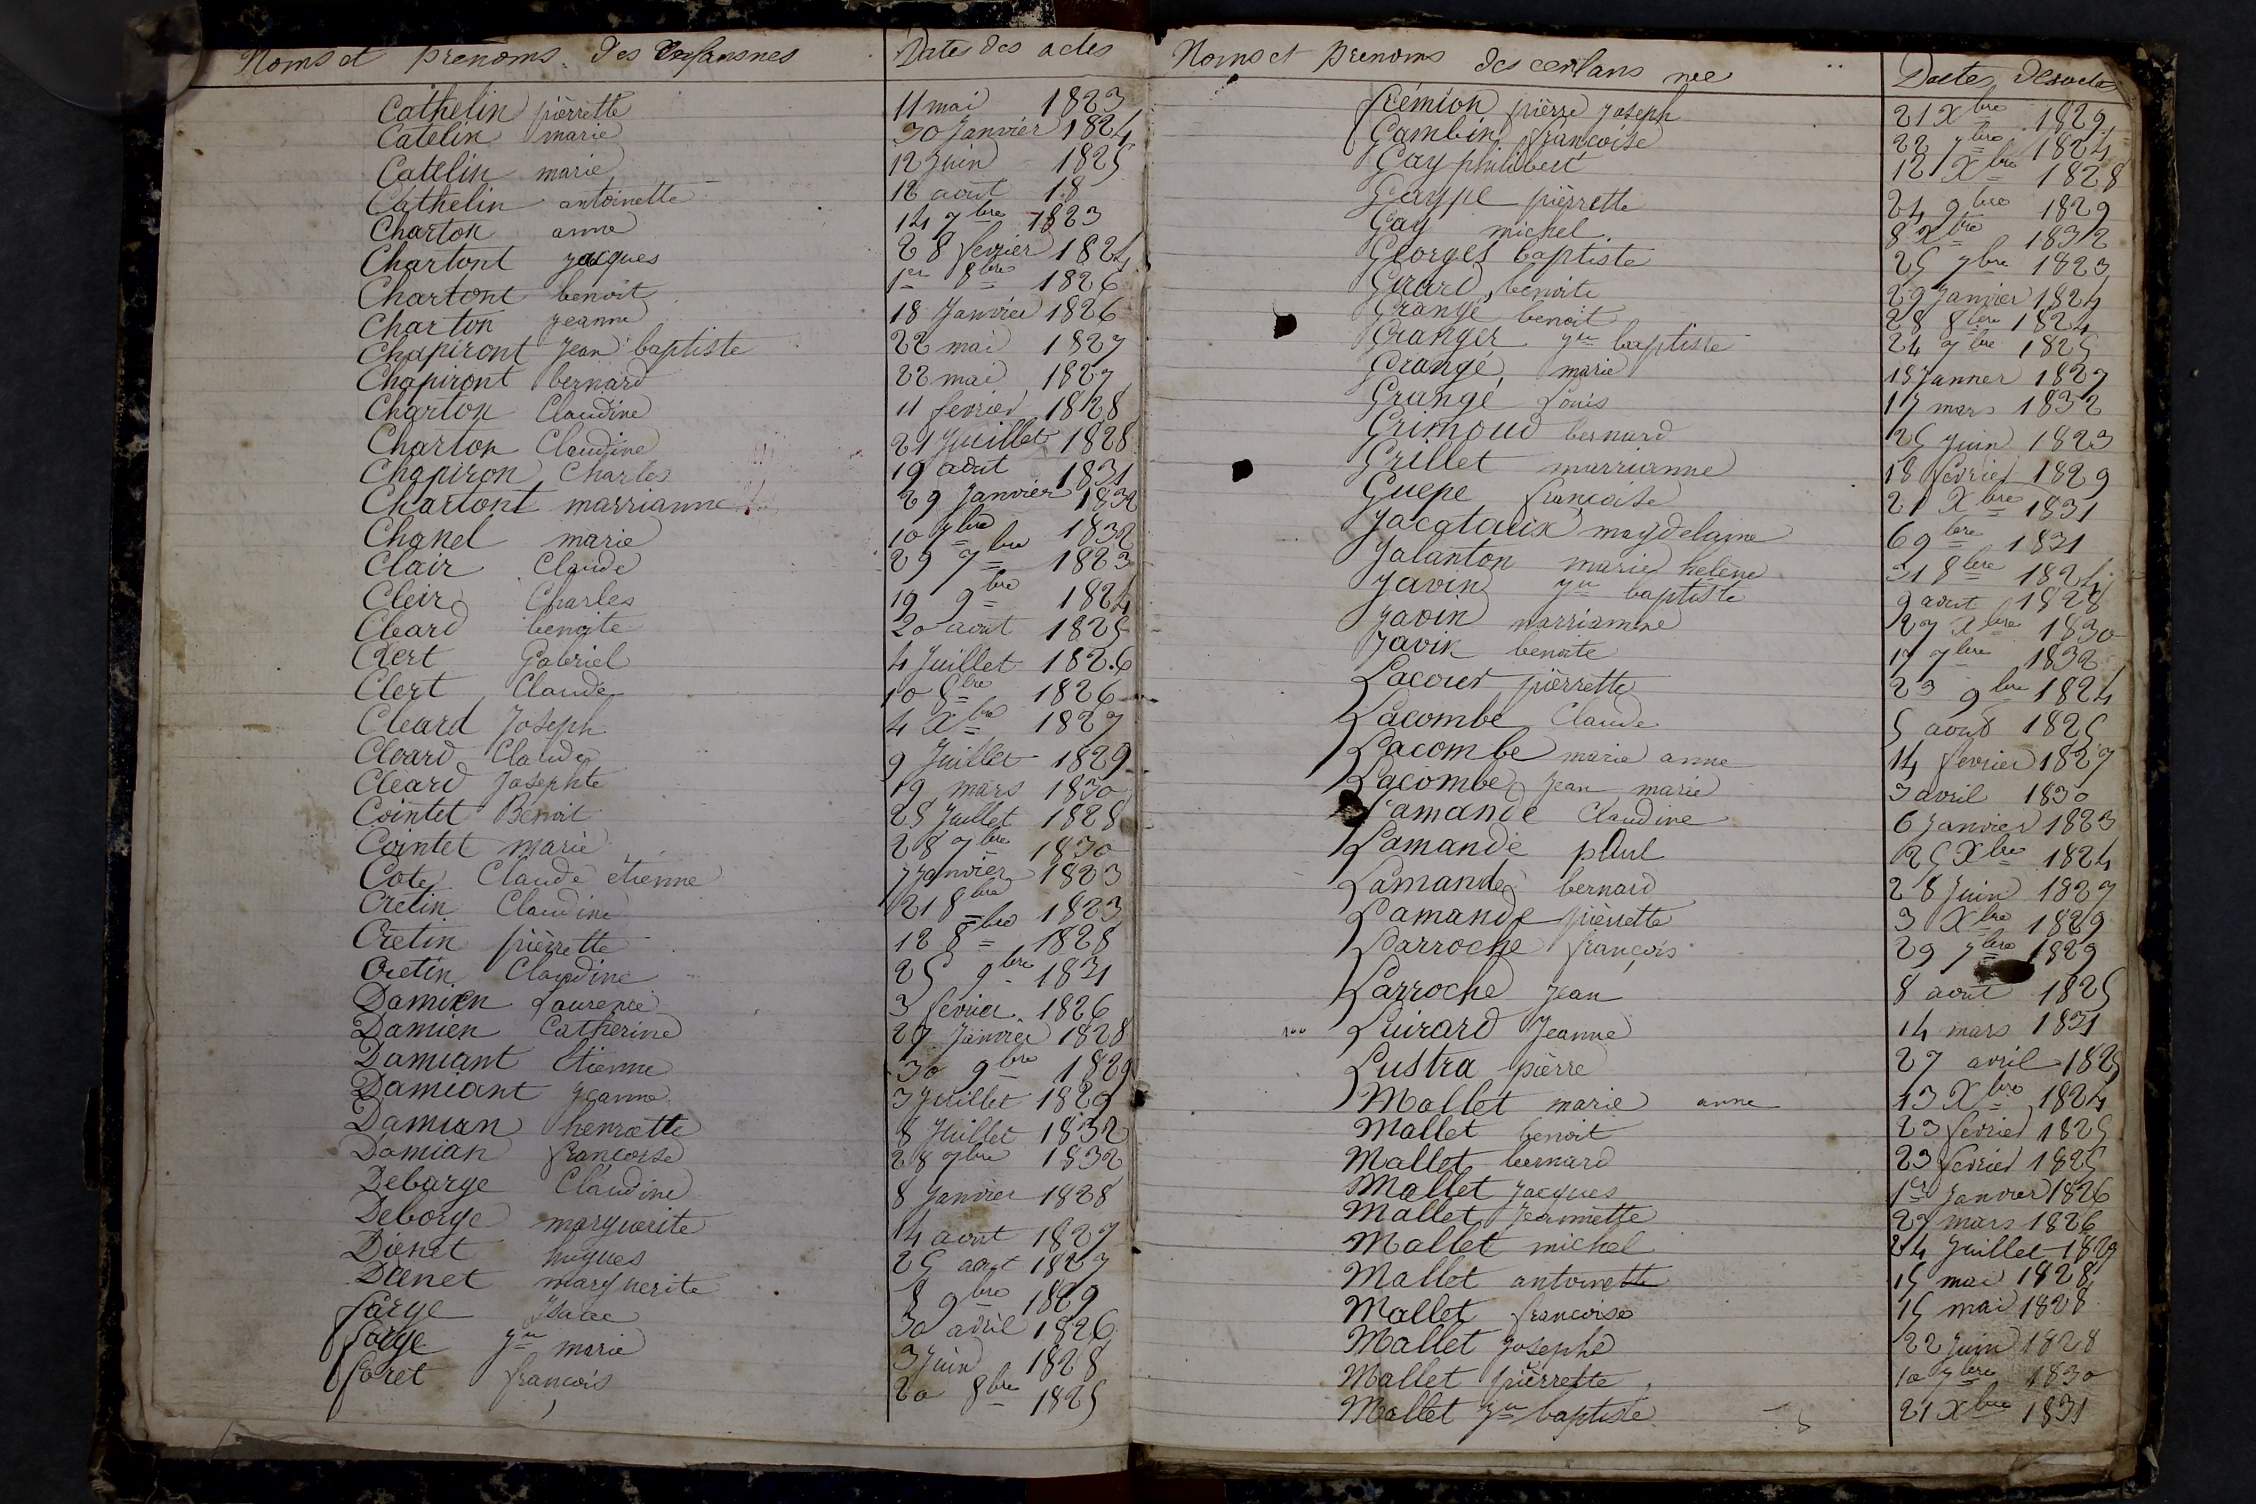 Noms et prenoms des Enfans nes Dates des actes
Cathelin pièrrette 11 mai 1823
Catelin marie 30 Janvier 1824
Catelin marie 12 Juin 1825
Cathelin antoinette 12 aout 18
Charton anne 14 7bre 1823
Chartont jacques 28 fevrier 1824
Chartont benoit 1er 8bre 1826
Charton jeanne 18 Janvier 1826
Chapiront Jean baptiste 22 mai 1827
Chapiront bernard 22 mai 1827
Charton Claudine 11 fevrier 1828
Charton Claudine 21 Juillet 1828
Chapiron Charles 19 aout 1831
Chartont marrianne 29 Janvier 1832
Chanel marie 10 7bre 1832
Clair Claude 29 7bre 1823
Cleir Charles 19 9bre 1824
Cleard benoite 20 aout 1825
Clert Gabriel 4 Juillet 1826
Clert Claude 10 8bre 1826
Cleard Joseph 4 Xbre 1827
Cleard Claude 9 Juillet 1829
Cleard Josephte 19 mars 1830
Cointet Benoit 25 Juillet 1828
Cointet marie 28 7bre 1830
Cote Claude étienne 7 Janvier 1823
Cretin Claudine 21 8bre 1823
Cretin pièrrette 12 8bre 1828
Cretin Claudine 25 9bre 1831
Damien Laurence 3 fevrier 1826
Damien Catherine 27 Janvier 1828
Damiant Etienne 30 9bre 1829
Damiant jeanne 3 Juillet 1829
Damian henriette 8 Juillet 1832
Damian francoise 28 7bre 1832
Debarge Claudine 8 Janvier 1828
Deborge marguerite 14 aout 1827
Dienet hugues 25 aout 1827
Dienet marguerite 8 9bre 1829
farge Isaac 30 avril 1826
farge jne marie 3 Juin 1828
foret francois 20 8bre 1825
Noms et prenoms des enfans nee Dates des actes
frémion pièrre joseph 21 Xbre 1829
Gambin francoise 22 7bre 1824
Gay philibert 12 Xbre 1828
Gaype pièrrette 24 9bre 1829
Gay michel 8 Xbre 1832
Georges baptiste 25 7bre 1823
Girard benoite 29 Janvier 1824
Grangé benoit 28 8bre 1824
Granger jn baptiste 24 7bre 1825
Grangé marie 15 Janner 1827
Grangé Louis 17 mars 1832
Grimoud bernard 25 Juin 1823
Grillet marrianne 18 fevrier 1829
Guepe françoise 21 Xbre 1831
Jacataux magdelaine 6 9bre 1831
Jalanton marie helène 31 8bre 1824
Javin jn baptiste 9 aout 1828
Javin marrianne 27 Xbre 1830
Javin benoite 17 7bre 1832
Lacour pièrrette 23 9bre 1824
Lacombe Claude 5 aout 1825
Lacombe marie anne 14 fevrier 1827
Lacombe Jean marie 3 avril 1830
Lamande Claudine 6 Janvier 1823
Lamande paul 25 Xbre 1824
Lamande bernard 28 Juin 1827
Lamande pièrrette 3 Xbre 1829
Larroche françois 29 7bre 1829
Larroche Jean 8 aout 1825
Luirard Jeanne 14 mars 1831
Lustra pièrre 27 avril 1825
Mallet marie anne 13 Xbre 1824
Mallet benoit 23 fevrier 1825
Mallet bernard 23 fevrier 1825
Mallet Jacques 1er Janvier 1826
Mallet Jeannette 27 mars 1826
Mallet michel 24 Juillet 1829
Mallet antoinette 15 mai 1828
Mallet francoise 15 mai 1828
Mallet Josephe 22 Juin 1828
Mallet pièrrette 10 7bre 1830
Mallet jn baptiste 21 Xbre 1831